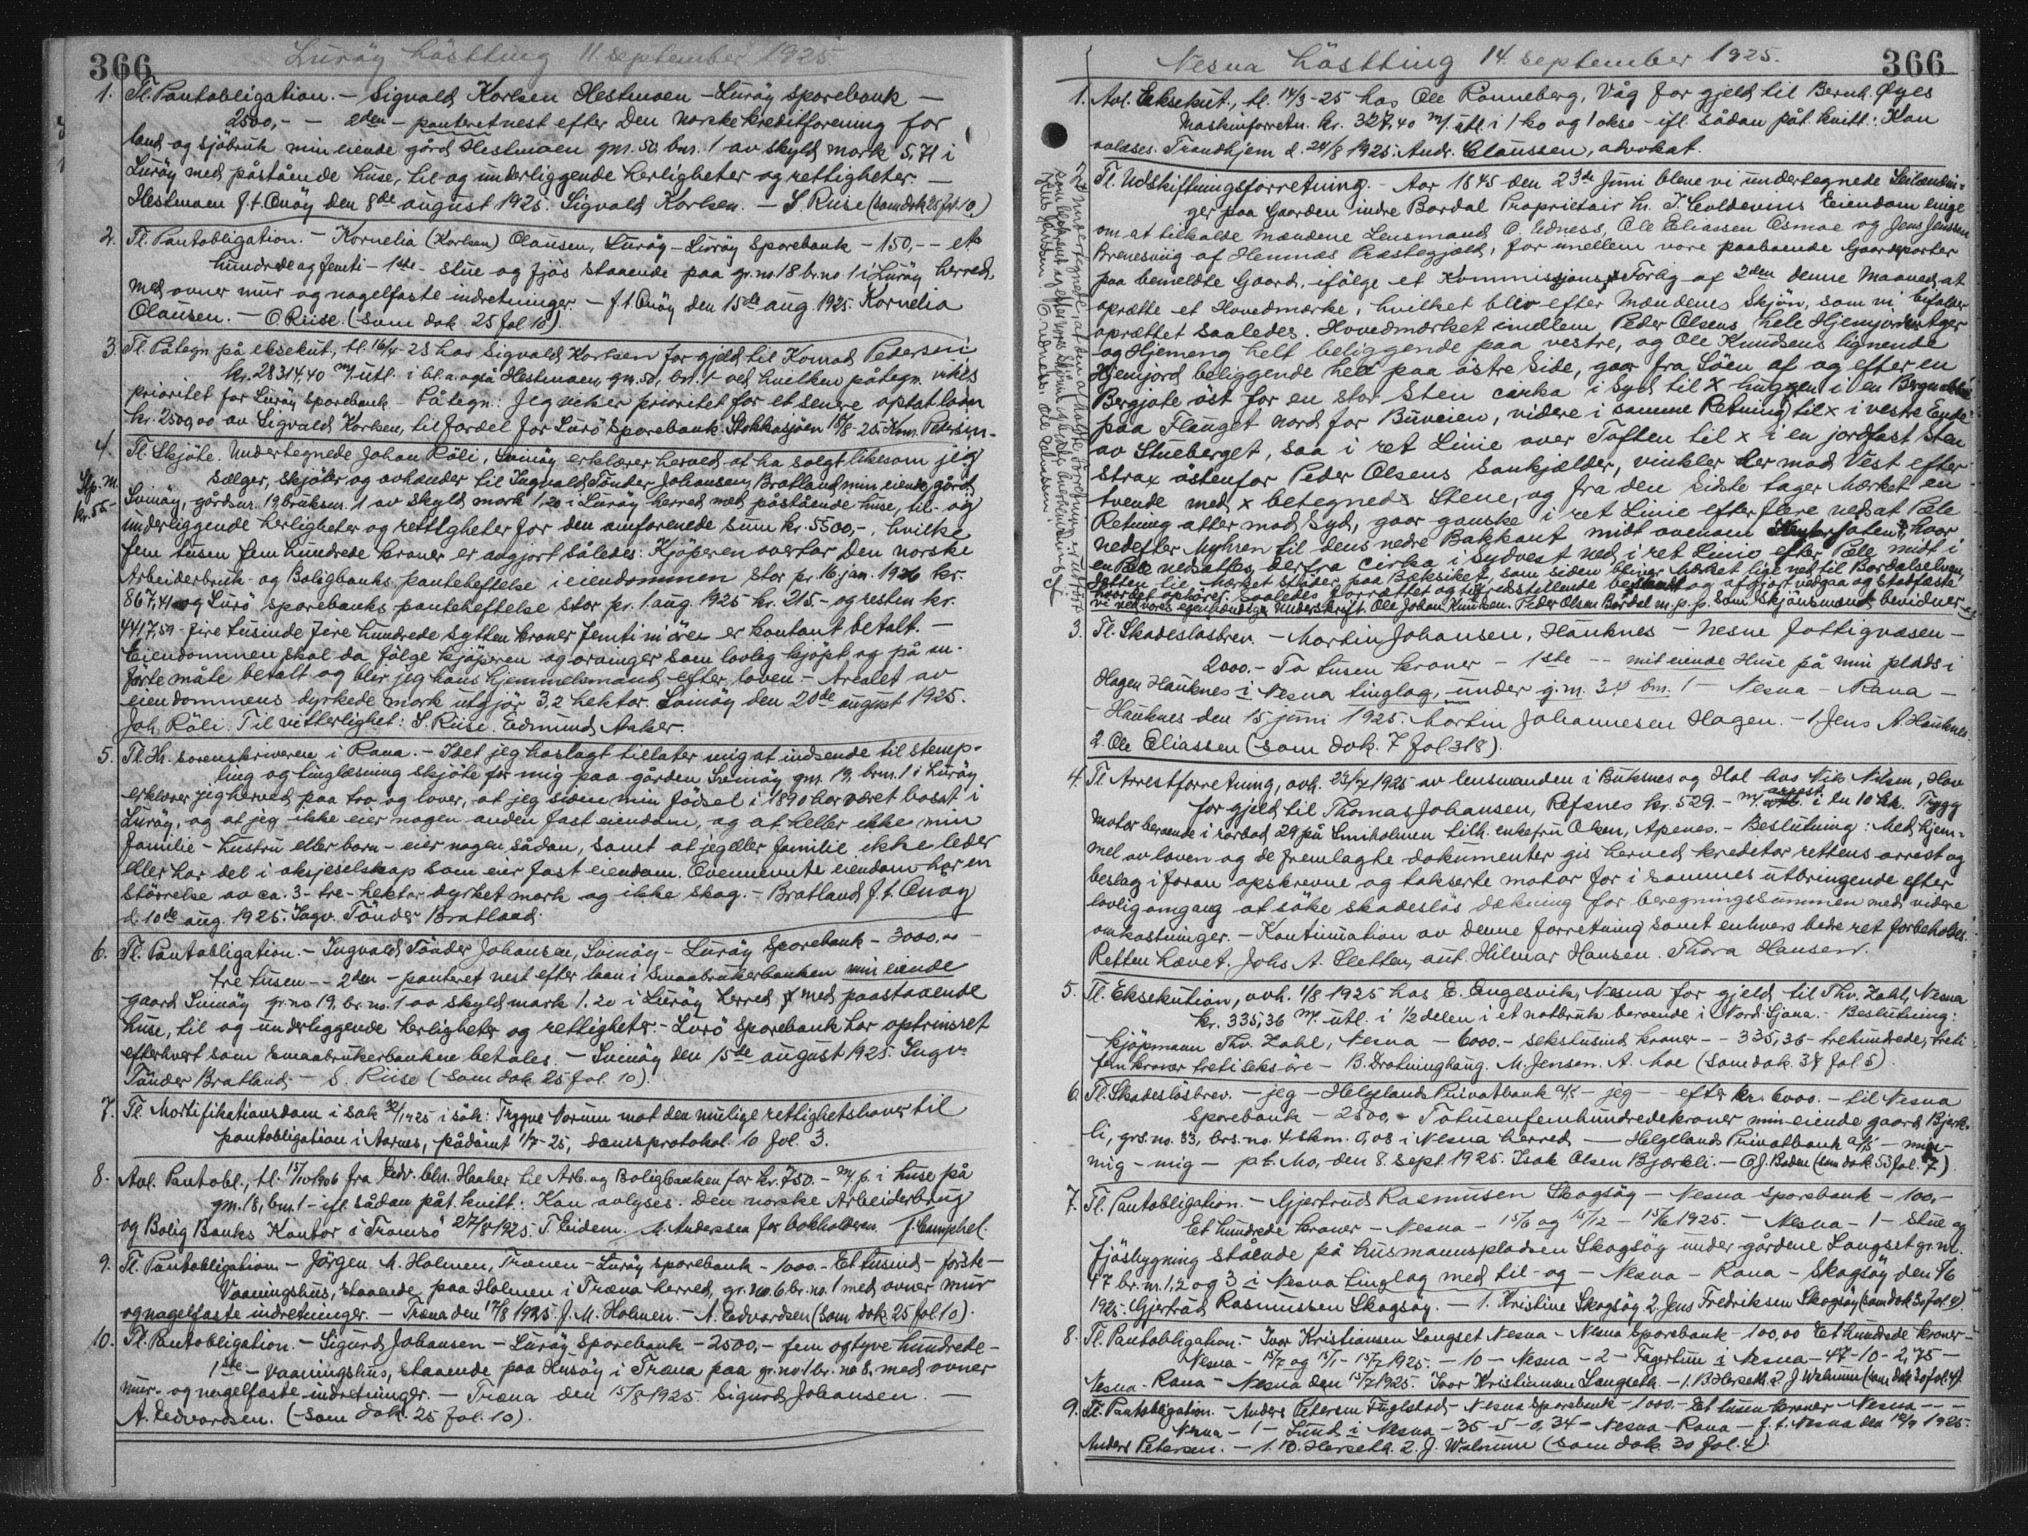 366
Luröy hösttting 11 september 1925
1. Tl. Pantobligation. – Sigvald Korlsen Hestmoen – Luröy sporebank –
2500,- – 2den – panteret nest efter Den norske kreditforening for
land og sjöbruk min eiende gård Hestmoen gnr. 50 bnr. 1 av skyld mark 5,71 i
Luröy med påstående huse, til og underliggende herligheter og rettigheter. –
Hestmoen f.t. Onöy den 8de august 1925. Sigvald Korlsen. – S. Riise (som dok 25 fol. 10)
2. Tl. Pantobligation. – Kornelia (Korlsen) Olausen, Luröy – Luröy Sporebank – 150,- – et
hundrede og femti – 1ste – stue og fjös staaende paa gr. no 18 br. no. 1 i Luröy herred,
med ovner mur og nagelfaste indretninger – f.t. Onöy den 15de aug. 1925. Kornelia
Olausen. – O. Riise. (som dok. 25 fol 10).
3. Tl. Påtegn. på eksekut., tl. 16/4-25 hos Sigvald Korlsen for gjeld til Konrad Pedersen
kr. 28314,40 m/ utl. i bl. a. også Hestmoen, gnr. 50, bnr. 1 ved hvilken påtegn. vikes
prioritet for Luröy sporebank – Påtegn: Jeg viker prioritet for et senere optat laan
kr. 2500,00 av Sigvald Korlsen, til fordel for Lurö sporebank. Stokkasjöen 15/8-25. Konr. Pedersen. –
4. Tl. Skjöte. Undertegnede Johan Röli, Svinöy erklærer herved at ha solgt liksom jeg
Stp. M. kr. 55-
sælger, skjöter og avhænder til Ingvald Tönder Johansen, Bratland min eiende gård
Svinöy, gårdsnr. 19, bruksnr. 1 av skyld mark 1,20 i Luröy herred med påstående huse, til- og
underliggende herligheter og rettigheter for den omforenede sum kr. 5500,-, hvilke
fem tusen fem hundrede kroner er avgjort således: Kjöperen overtar Den norske
Arbeiderbruk- og Boligbanks panteheftelse i eiendommen stor pr. 16 jan. 1926 kr.
867,41 og Lurö sporebanks panteheftelse stor pr. 1. aug. 1925 kr. 215.- og resten kr.
4417,59 - fire tusinde fire hundrede sytten kroner femti ni örer er kontant betalt. –
Eiendommen skal da fölge kjöperen og arvinger som lovleg kjöpt og på an-
förte måte betalt og blir jeg hans hjemmelsmand efter loven – Arealet av
eiendommens dyrkede mark utgjör 3,2 hektar. Svinöy den 20de august 1925.
Joh. Röli. Til vitterlighet: S. Riise. Edmund Aaker.
5. Tl. Hr. sorenskriveren i Rana. – Idet jeg hoslagt tillater mig at indsende til stemp-
ling og tinglæsning skjöte for mig paa gården Svinöy gnr. 19, brnr. 1 i Luröy
erklærer jeg herved paa tro og lover, at jeg siden min födsel i 1890 har været bosat i
Luröy, og at jeg ikke eier nogen anden fast eiendom, og at heller ikke min
familie – hustru eller barn – eier nogen sådan, samt at jeg eller familie ikke leder
eller har del i aksjeselskap som eier fast eiendom. Ovennævnte eiendom har en
störrelse av ca. 3 - tre - hektar dyrket mark og ikke skog. – Bratland f.t. Onöy
d. 10de aug. 1925. Ingv. Tönder Bratland.
6. Tl. Pantobligation. – Ingvald Tönder Johansen, Svinöy – Luröy Sporebank – 3000,00 –
tre tusen – 2den – panteret nest efter laan i Smaabrukerbanken min eiende
gaard Svinöy gr. no 19, br. no. 1 av skyldmark 1.20 i Luröy herred med paastaaende
huse, til og underliggende herligheter og rettigheter. – Lurö Sporebank har optrinsret
efterhvert som Smaabrukerbanken betales. – Svinöy den 15de august 1925. Ingv.
Tönder Bratland – S. Riise (som dok. 25 fol. 10).
7. Tl. Mortifikationsdom i sak 32/1925 i sök: Trygve Vorum mot den mulige rettighetshaver til
pantobligation i Aarnes, pådömt 1/7-25, domsprotokol 10 fol. 3.
8. Avl. Pantobl., tl. 15/10 1906 fra Edv. Haaker til Arb. og Boligbanken for kr. 750. – m/ p. i huse på
gnr. 18, bnr. 1 – ifl. sådan påt. kvitt: Kan avlyses. Den norske Arbeiderbrug
og Bolig Banks Kontor i Tromsö 27/8 1925. T. Eidem. M. Anderssen for bokholderen.
9. Tl. Pantobligation – Jörgen M. Holmen, Trænen – Luröy sporebank – 1000.- Et tusind – förste –
Vaaningshus, staaende paa Holmen i Træna herred, gr. no. 6 br. no. 1 med ovner mur
og nagelfaste indretninger. – Træna den 17/8 1925. J. M. Holmen. – A. Edvardsen (som dok. 25 fol 10).
10. Tl. Pantobligation. – Sigurd Johansen – Luröy Sporebank – 2500,- fem og tyve hundrede –
1ste – Vaaningshus, staaende paa Husöy i Træna paa gr. no 1 br. no 8, med ovner
mur- og nagelfaste indretninger. – Træna den 15/8 1925. Sigurd Johansen. –
A. Edvardsen. (som dok. 25 fol. 10).
Nesna hösttting 14. september 1925.
366
1. Avl. Eksekut., tl. 14/3-25 hos Ole Ronneberg, Våg for gjeld til Bernh. Öyes
Maskinforretn. kr. 327,40 m/ utl. i 1 ko og 1 okse – ifl. sådan påt. kvitt.: Kan
avlæses. Trondhjem d. 24/8 1925. Andr. Claussen, advokat.
2. Tl. Udskiftningsforretning. – Aar 1845 den 23de Juni bleve vi undertegnede Leilændin-
ger paa Gaarden indre Bardal Proprietair Hr. I. Coldevins Eiendom enige
om at tilkalde Mændene Lensmand O. Edness, Ole Eliassen Osmoe og Jens Jenssen
Brenesvig af Hemnæs Præstegjeld, for imellem vore paaboende Gaardparter
paa bemeldte Gaard, ifölge et Kommissions Forlig af 2den denne Maaned, at
oprette et Hovedmærke, hvilket blev efter Mændenes Skjön, som vi bifalder
oprættet saaledes. Hovedmærket imellem Peder Olsens hele Hjemjords Ager
og Hjemeng helt beliggende paa vestre, og Ole Knudsens lignende
Hjemjord beliggende helt paa östre Side, gaar fra Söen af og efter en
Bergjote öst for en stor Sten cirka i Syd til X huggen i en
paa Flauget nord for Buveien, videre i samme Retning til x i vestre Ende
av Stueberget, saa i ret Linie over Toften til x i en jordfast Sten
strax östenfor Peder Olsens Sankjælder, vinkler der mod Vest efter
tvende med x betegnede Stene, og fra den sidste tager Mærket en
Retning atter mod syd, gaar ganske i ret Linie efter flere nedsat Pæle
nedefter Myhren til dens nedre Bakkant midt ovenom hvor
en Pæl nedsattes, derfra cirka i Sydvest ned i ret Linie efter Pæle midt i
Jotten til Mærket stöder paa Baksiket, som siden bliver Mærket lige ned til Bordalselven,
hvorved ophörer. Saaledes forrættet og tilfredsstillende bestemt og afgjort vedgaa og stadfæste
vi ved vores egenhændige Underskrift. Ole Johan Knudsen. Peder Olsen Bardal m. p. p. Som skjönsmænd bevidner
3. Tl. Skadeslösbrev. – Martin Johansen, Hauknes – Nesne fattigvæsen –
2000.- To tusen kroner – 1ste – – mit eiende Huse på min plads i
Hagen Hauknes i Nesna tinglag, under g.nr. 34 bnr. 1 – Nesna – Rana –
– Hauknes den 15 juni 1925. Martin Johannesen Hagen. – 1. Jens A. Hauknes.
2. Ole Eliassen (som dok. 7 fol 318).
4. Tl. Arrestforretning, avh. 23/7 1925 av lensmanden i Buksnes og Hol hos Nils Nilsen, Hov
for gjeld til Thomas Johansen, Refsnes kr. 529.- m/ arrest i en 10 hk. Trygg
motor beroende i rorbod 29 på Smiholmen tilh. enkefru Olsen, Apenes. – Beslutning: Med hjem-
mel av loven og de fremlagte dokumenter gis herved kreditor rettens arrest og
beslag i foran opskrevne og takserte motor for i sammes utbringende efter
lovlig omgang at söke skadeslös dækning for beregningssummen med videre
omkostninger. – Kontinuation av denne forretning samt enhvers bedre ret forbeholdes.
Retten hævet. Johs A. Sletten, aut. Hilmar Hansen. Thora Hansen.
5. Tl. Eksekution, avh. 1/8 1925 hos E. Engesvik, Nesna for gjeld til Thv. Zahl, Nesna
kr. 335,36 m/ utl. i 1/2 delen i et notbruk beroende i Nord-Sjona. – Beslutning:
– kjöpmann Thv. Zahl, Nesna – 6000.- sekstusind kroner – – 335,36 – trehundrede, treti
fem kroner treti seks öre – B. Drotninghaug. M. Jensen. A. hoe (som dok 34 fol 5).
6. Tl. Skadeslösbrev. – jeg – Helgelands Privatbank A/S – jeg – efter kr. 6000.- til Nesna
Sporebank – 2500,- Totusenfemhundredekroner min eiende gaard Bjerk-
li, grs. no. 33, brs. no. 4 skm. 0,08 i Nesna herred – Helgelands Privatbank A/S – min
mig – mig – p.t. Mo, den 8. sept. 1925. Isak Olsen Bjærkli. – O. J. Baden (som dok. 53 fol. 7)
7. Tl. Pantobligation. – Gjertrud Rasmusen Skogsöy – Nesna sporebank – 100,-
Et hundrede kroner – Nesna – 15/6 og 15/12 – 15/6 1925. – Nesna – 1 – Stue og
fjösbygning stående på husmannspladsen Skogsöy under gårdene Langset gr.nr.
47 br.nr. 1, 2 og 3 i Nesna tinglag med til- og – Nesna – Rana – Skogsöy den 9/6
1925. Gjertrud Rasmussen Skogsöy. – 1. Kristine Skogsöy 2. Jens Fredriksen Skogsöy (som dok 30 fol. 4).
8. Tl. Pantobligation. – Ivar Kristiansen Langset Nesna – Nesna Sporebank – 100,00 Et hundrede kroner –
Nesna – 15/7 og 15/1 – 15/7 1925. – 10 – Nesna – 2 – Fagertun i Nesna – 47 – 10 – 2,75 –
Nesna – Rana – Nesna den 15/7 1925. Ivar Kristiansen Langseth. – 1. B. Herseth. 2. J. Walnum (som dok 30 fol. 4).
9. Tl. Pantobligation. – Anders Petersen Fuglstad – Nesna Sporebank – 1000.- Et tusen kroner – Nesna – – –
Nesna – 1 – Lund i Nesna – 35 – 5 – 0,34 – Nesna – Rana – f.t. Nesna den 12/9 1925.
Anders Petersen. – 1. B. Herseth. 2. J. Walnum (som dok. 30 fol. 4).